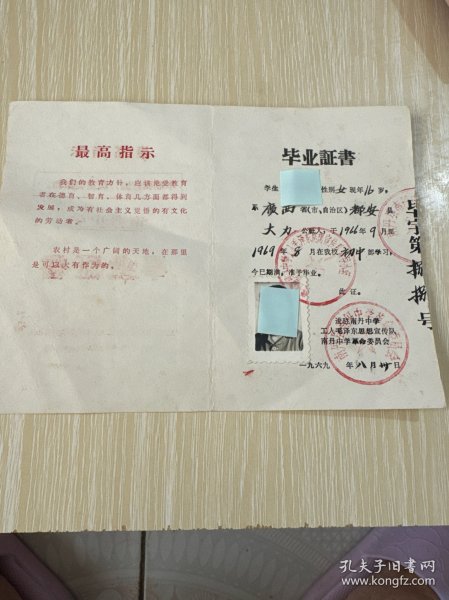 最高指示
我们的教育方针，应该使受教育
者在德育、智育、体育几方面都得到
发展，成为有社会主义觉悟的有文化
的劳动者。
农村是一个广阔的天地，在那里
是可以大有作为的。
毕业証書
学生 性别女现年16岁，
系广西省(市、自治区)都安县
大力公社人，于1966年9月至
1969年8月在我校初中部学习，
今已期满，准予毕业。
此证。
南丹中学
工人毛泽东思想宣传队
南丹中学革命委员会
一九六九年八月 日
毕字第 号
孔夫子旧书网
www.kongfz.com